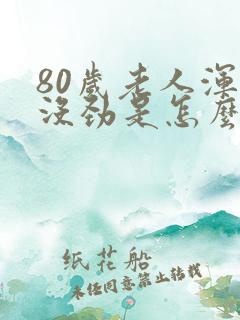 80歲老人渾
沒勁是怎麼
纸花船
未经同意禁止转载